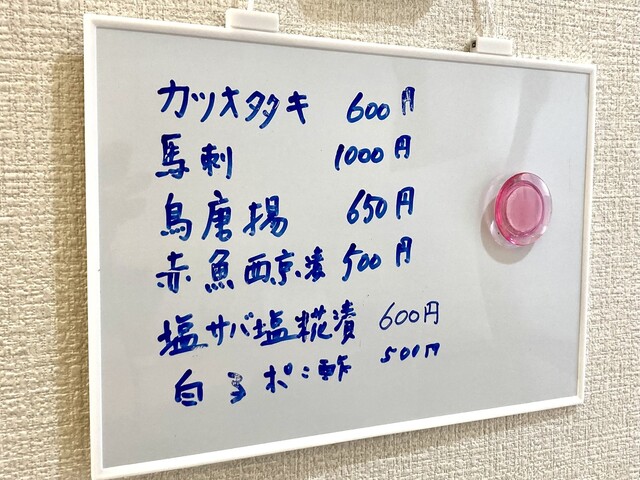 カツオタタキ 600円
馬刺 1000円
鳥唐揚 650円
赤魚西京漬 500円
塩サバ塩糀漬 600円
白子ポン酢 500円